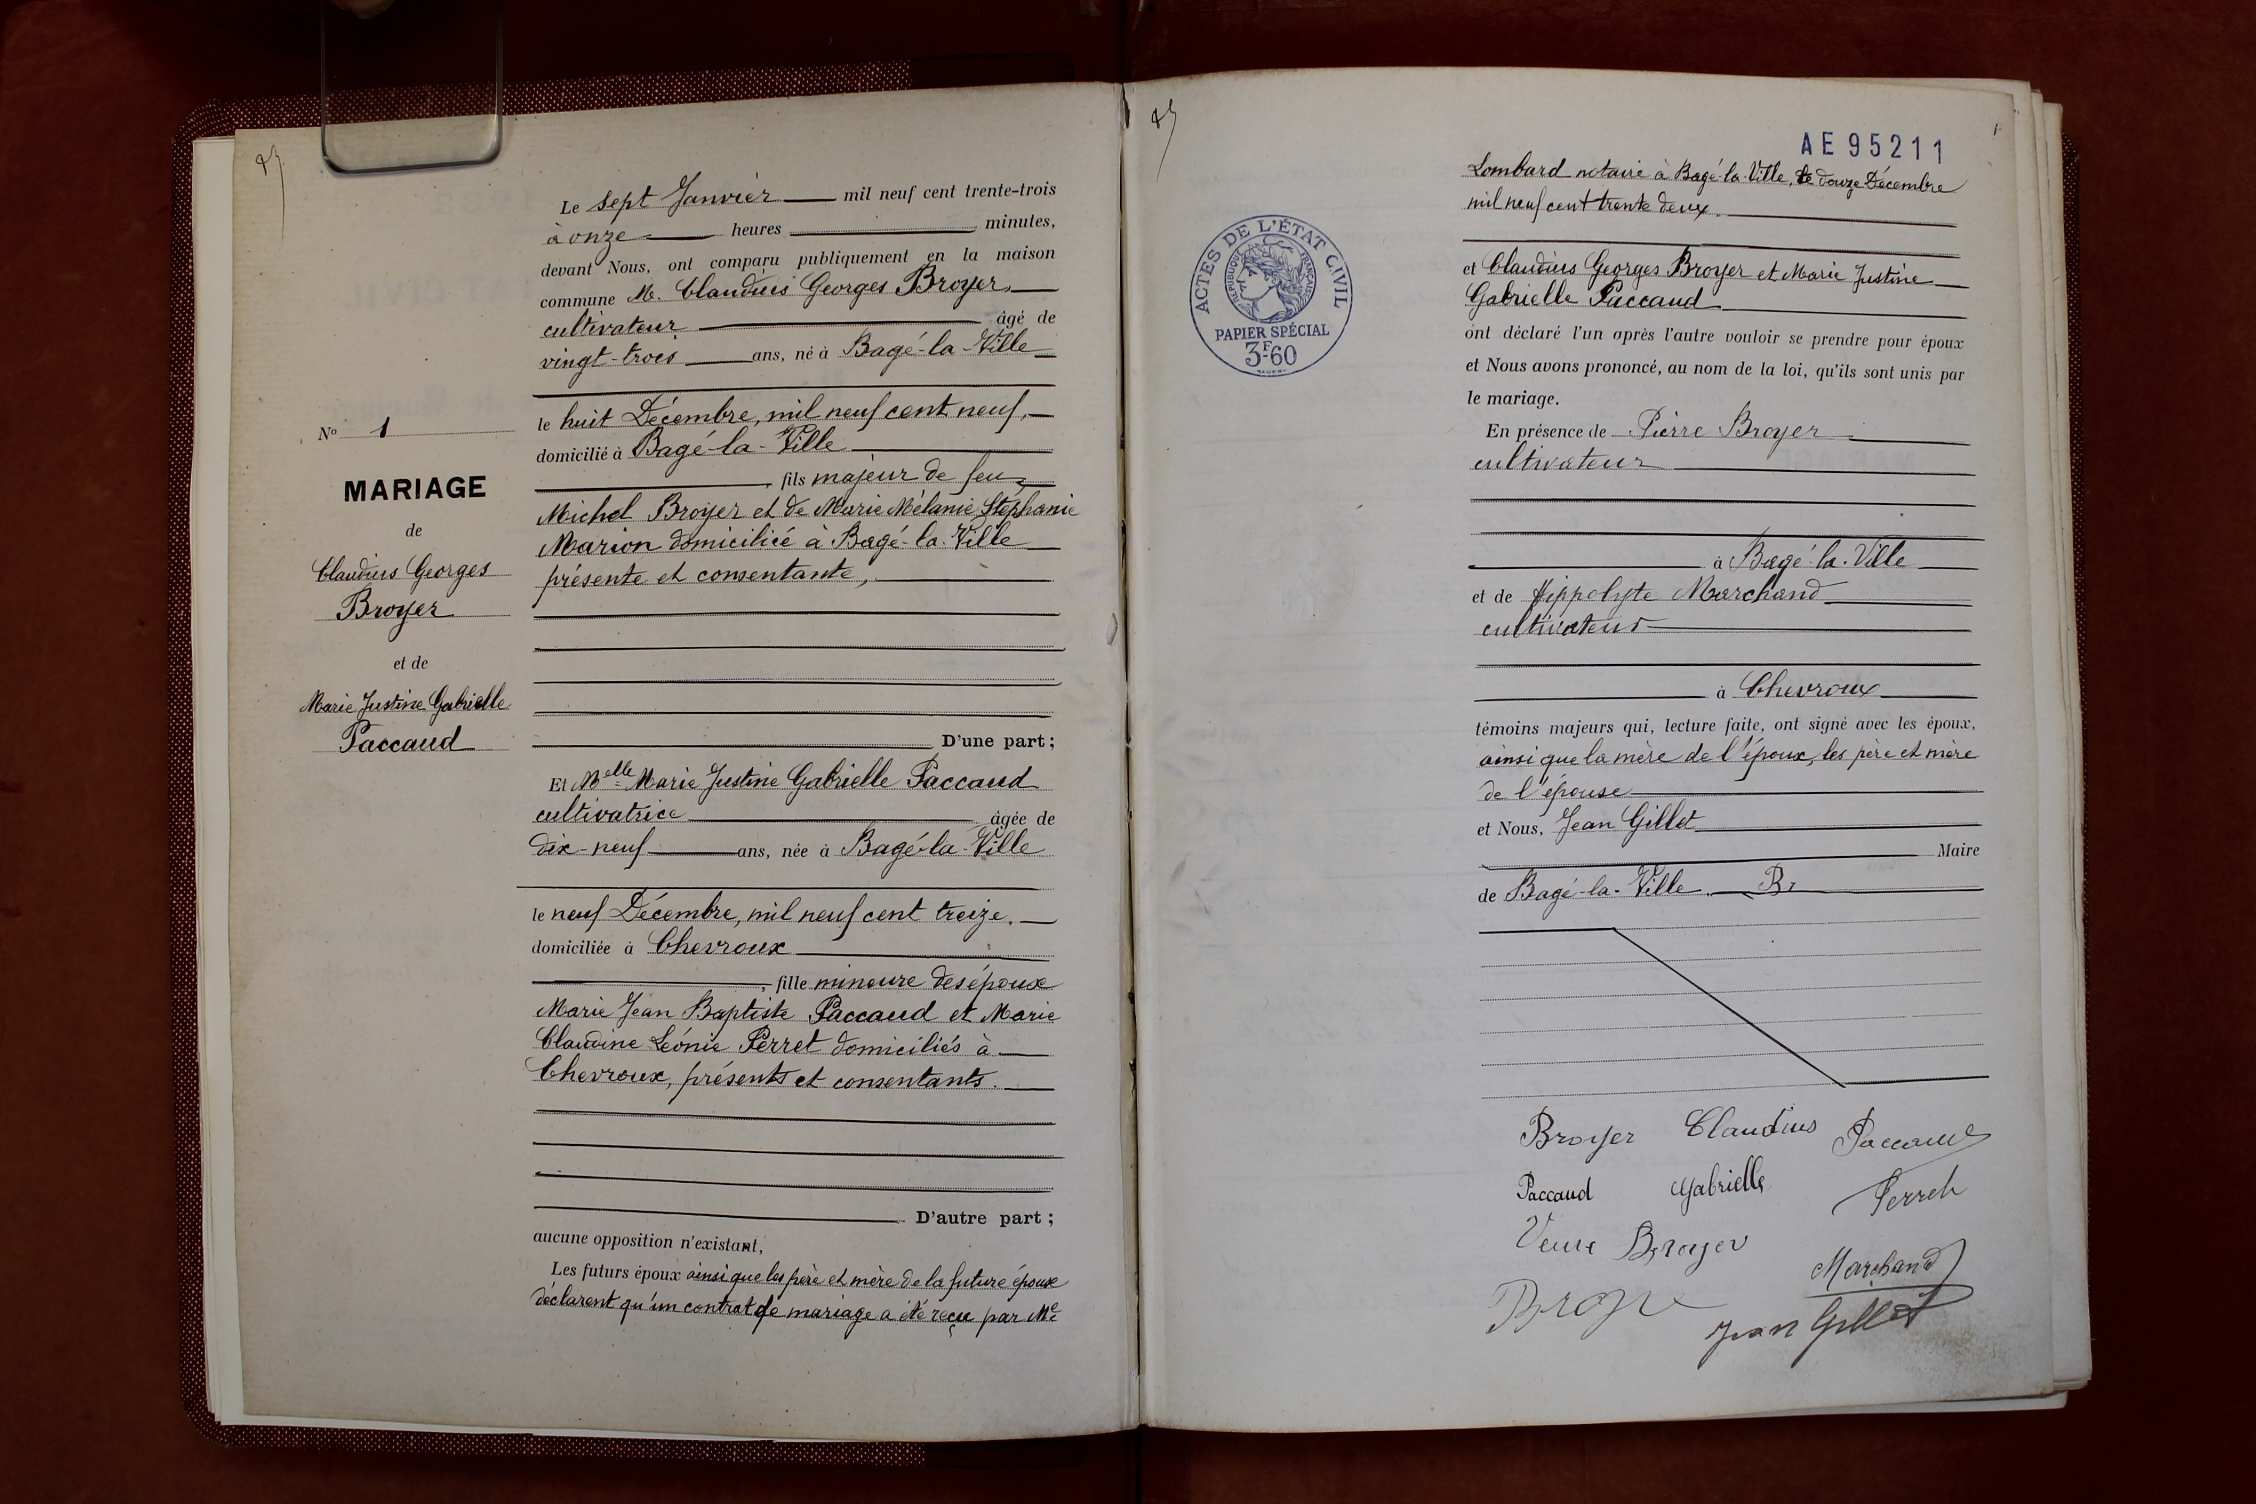 Le sept Janvier mil neuf cent trente-trois
à onze heures minutes,
devant Nous, ont comparu publiquement en la maison
commune M. Claudius Georges Broyer,
cultivateur âgé de
vingt-trois ans, né à Bagé-la-Ville
le huit Décembre, mil neuf cent neuf,
domicilié à Bagé-la-Ville
, fils majeur de feu
Michel Broyer et de Marie Mélanie Stéphanie
Marion domiciliée à Bagé-la-Ville
présente et consentante,
D'une part;
Et Melle Marie Justine Gabrielle Paccaud
cultivatrice âgée de
dix-neuf ans, née à Bagé-la-Ville
le neuf Décembre, mil neuf cent treize.
domiciliée à Chevroux
, fille mineure des époux
Marie Jean Baptiste Paccaud et Marie
Claudine Léonie Perret domiciliés à
Chevroux, présents et consentants.
D'autre part;
aucune opposition n'existant,
Les futurs époux ainsi que les père et mère de la future épouse
déclarent qu'un contrat de mariage a été reçu par Me
No 1
MARIAGE
de
Claudius Georges
Broyer
et de
Marie Justine Gabrielle
Paccaud
AE 95211
Lombard notaire à Bagé-la-Ville, le douze Décembre
mil neuf cent trente deux.
et Claudius Georges Broyer et Marie Justine
Gabrielle Paccaud
ont déclaré l'un après l'autre vouloir se prendre pour époux
et Nous avons prononcé, au nom de la loi, qu'ils sont unis par
le mariage.
En présence de Pierre Broyer
cultivateur
à Bagé-la-Ville
et de Hippolyte Marchand
cultivateur
à Chevroux
témoins majeurs qui, lecture faite, ont signé avec les époux,
ainsi que la mère de l'époux, les père et mère
de l'épouse
et Nous, Jean Gillet
Maire
de Bagé-la-Ville
Broyer Claudius Paccaud
Paccaud Gabrielle Perret
Veuve Broyer
Marchand
Broyer
Jean Gillet
ACTES DE L'ÉTAT CIVIL
RÉPUBLIQUE FRANÇAISE
PAPIER SPÉCIAL
3F.60